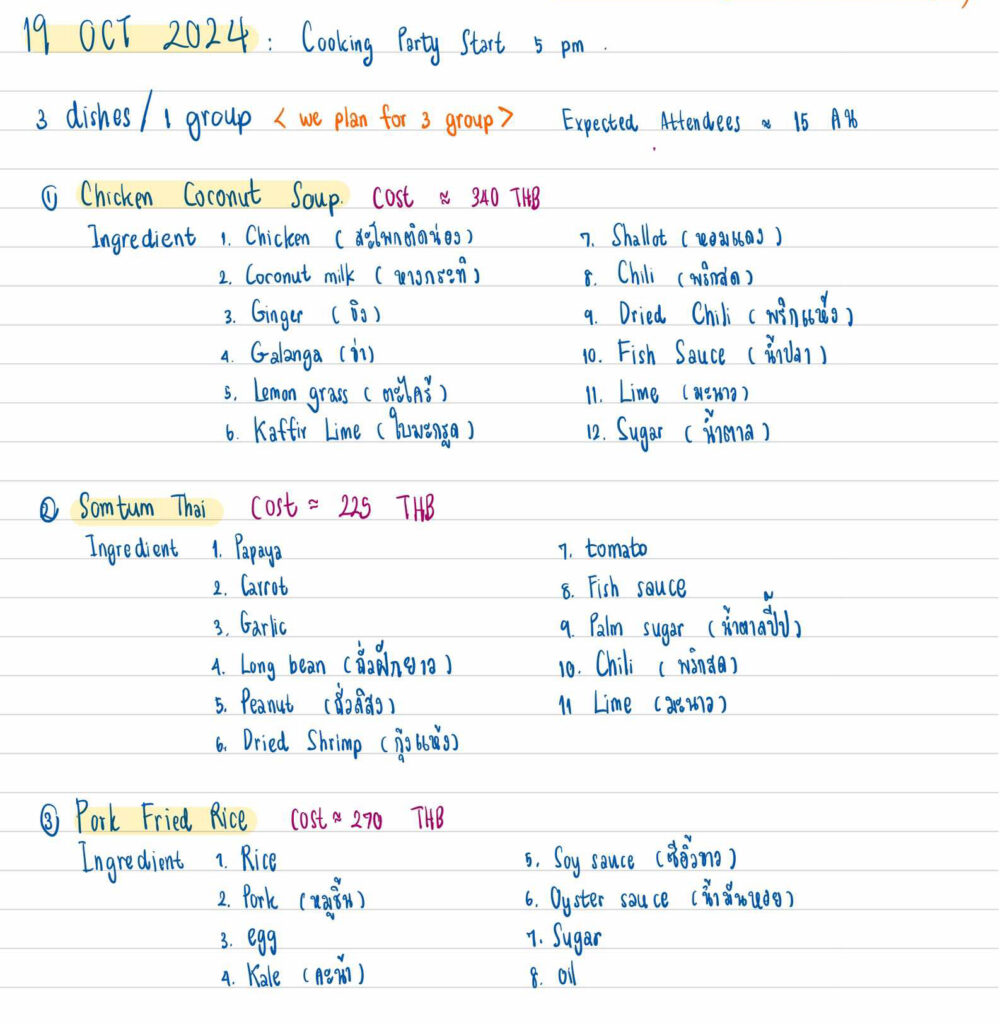 19 OCT 2024 : Cooking Party Start 5 pm .
3 dishes / 1 group < we plan for 3 group > Expected Attendees ≈ 15 คน
① Chicken Coconut Soup. Cost ≈ 340 THB
Ingredient 1. Chicken (สะโพกติดน่อง)
2. Coconut milk (หางกะทิ)
3. Ginger (ขิง)
4. Galanga (ข่า)
5. Lemon grass (ตะไคร้)
6. Kaffir Lime (ใบมะกรูด)
7. Shallot (หอมแดง)
8. Chili (พริกสด)
9. Dried Chili (พริกแห้ง)
10. Fish Sauce (น้ำปลา)
11. Lime (มะนาว)
12. Sugar (น้ำตาล)
② Somtum Thai Cost ≈ 225 THB
Ingredient 1. Papaya
2. Carrot
3. Garlic
4. Long bean (ถั่วฝักยาว)
5. Peanut (ถั่วลิสง)
6. Dried Shrimp (กุ้งแห้ง)
7. tomato
8. Fish sauce
9. Palm sugar (น้ำตาลปี๊ป)
10. Chili (พริกสด)
11 Lime (มะนาว)
③ Pork Fried Rice Cost ≈ 270 THB
Ingredient 1. Rice
2. Pork (หมูชิ้น)
3. egg
4. Kale (คะน้า)
5. Soy sauce (ซีอิ๊วขาว)
6. Oyster sauce (น้ำมันหอย)
7. Sugar
8. oil